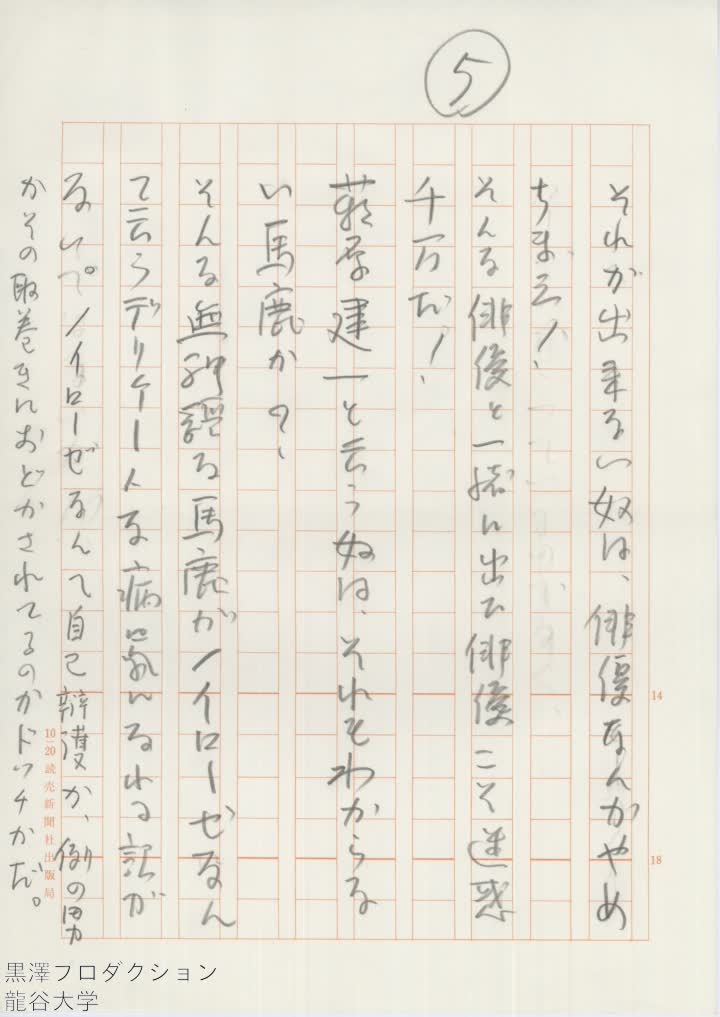 5
それが出来ない奴は、俳優なんかやめ
ちまえ!
そんな俳優と一緒に出た俳優こそ迷惑
千万だ!
萩原建一と云う奴は、それもわからな
い馬鹿か?、
そんな無神経な馬鹿がノイローゼなん
て云うデリケートな病気になれる訳が
ない。ノイローゼなんて自己辯護か、例の
かその取巻きにおどかされてるのかドッチかだ。
14
18
10 20 読売新聞社出版局
黒澤プロダクション
龍谷大学